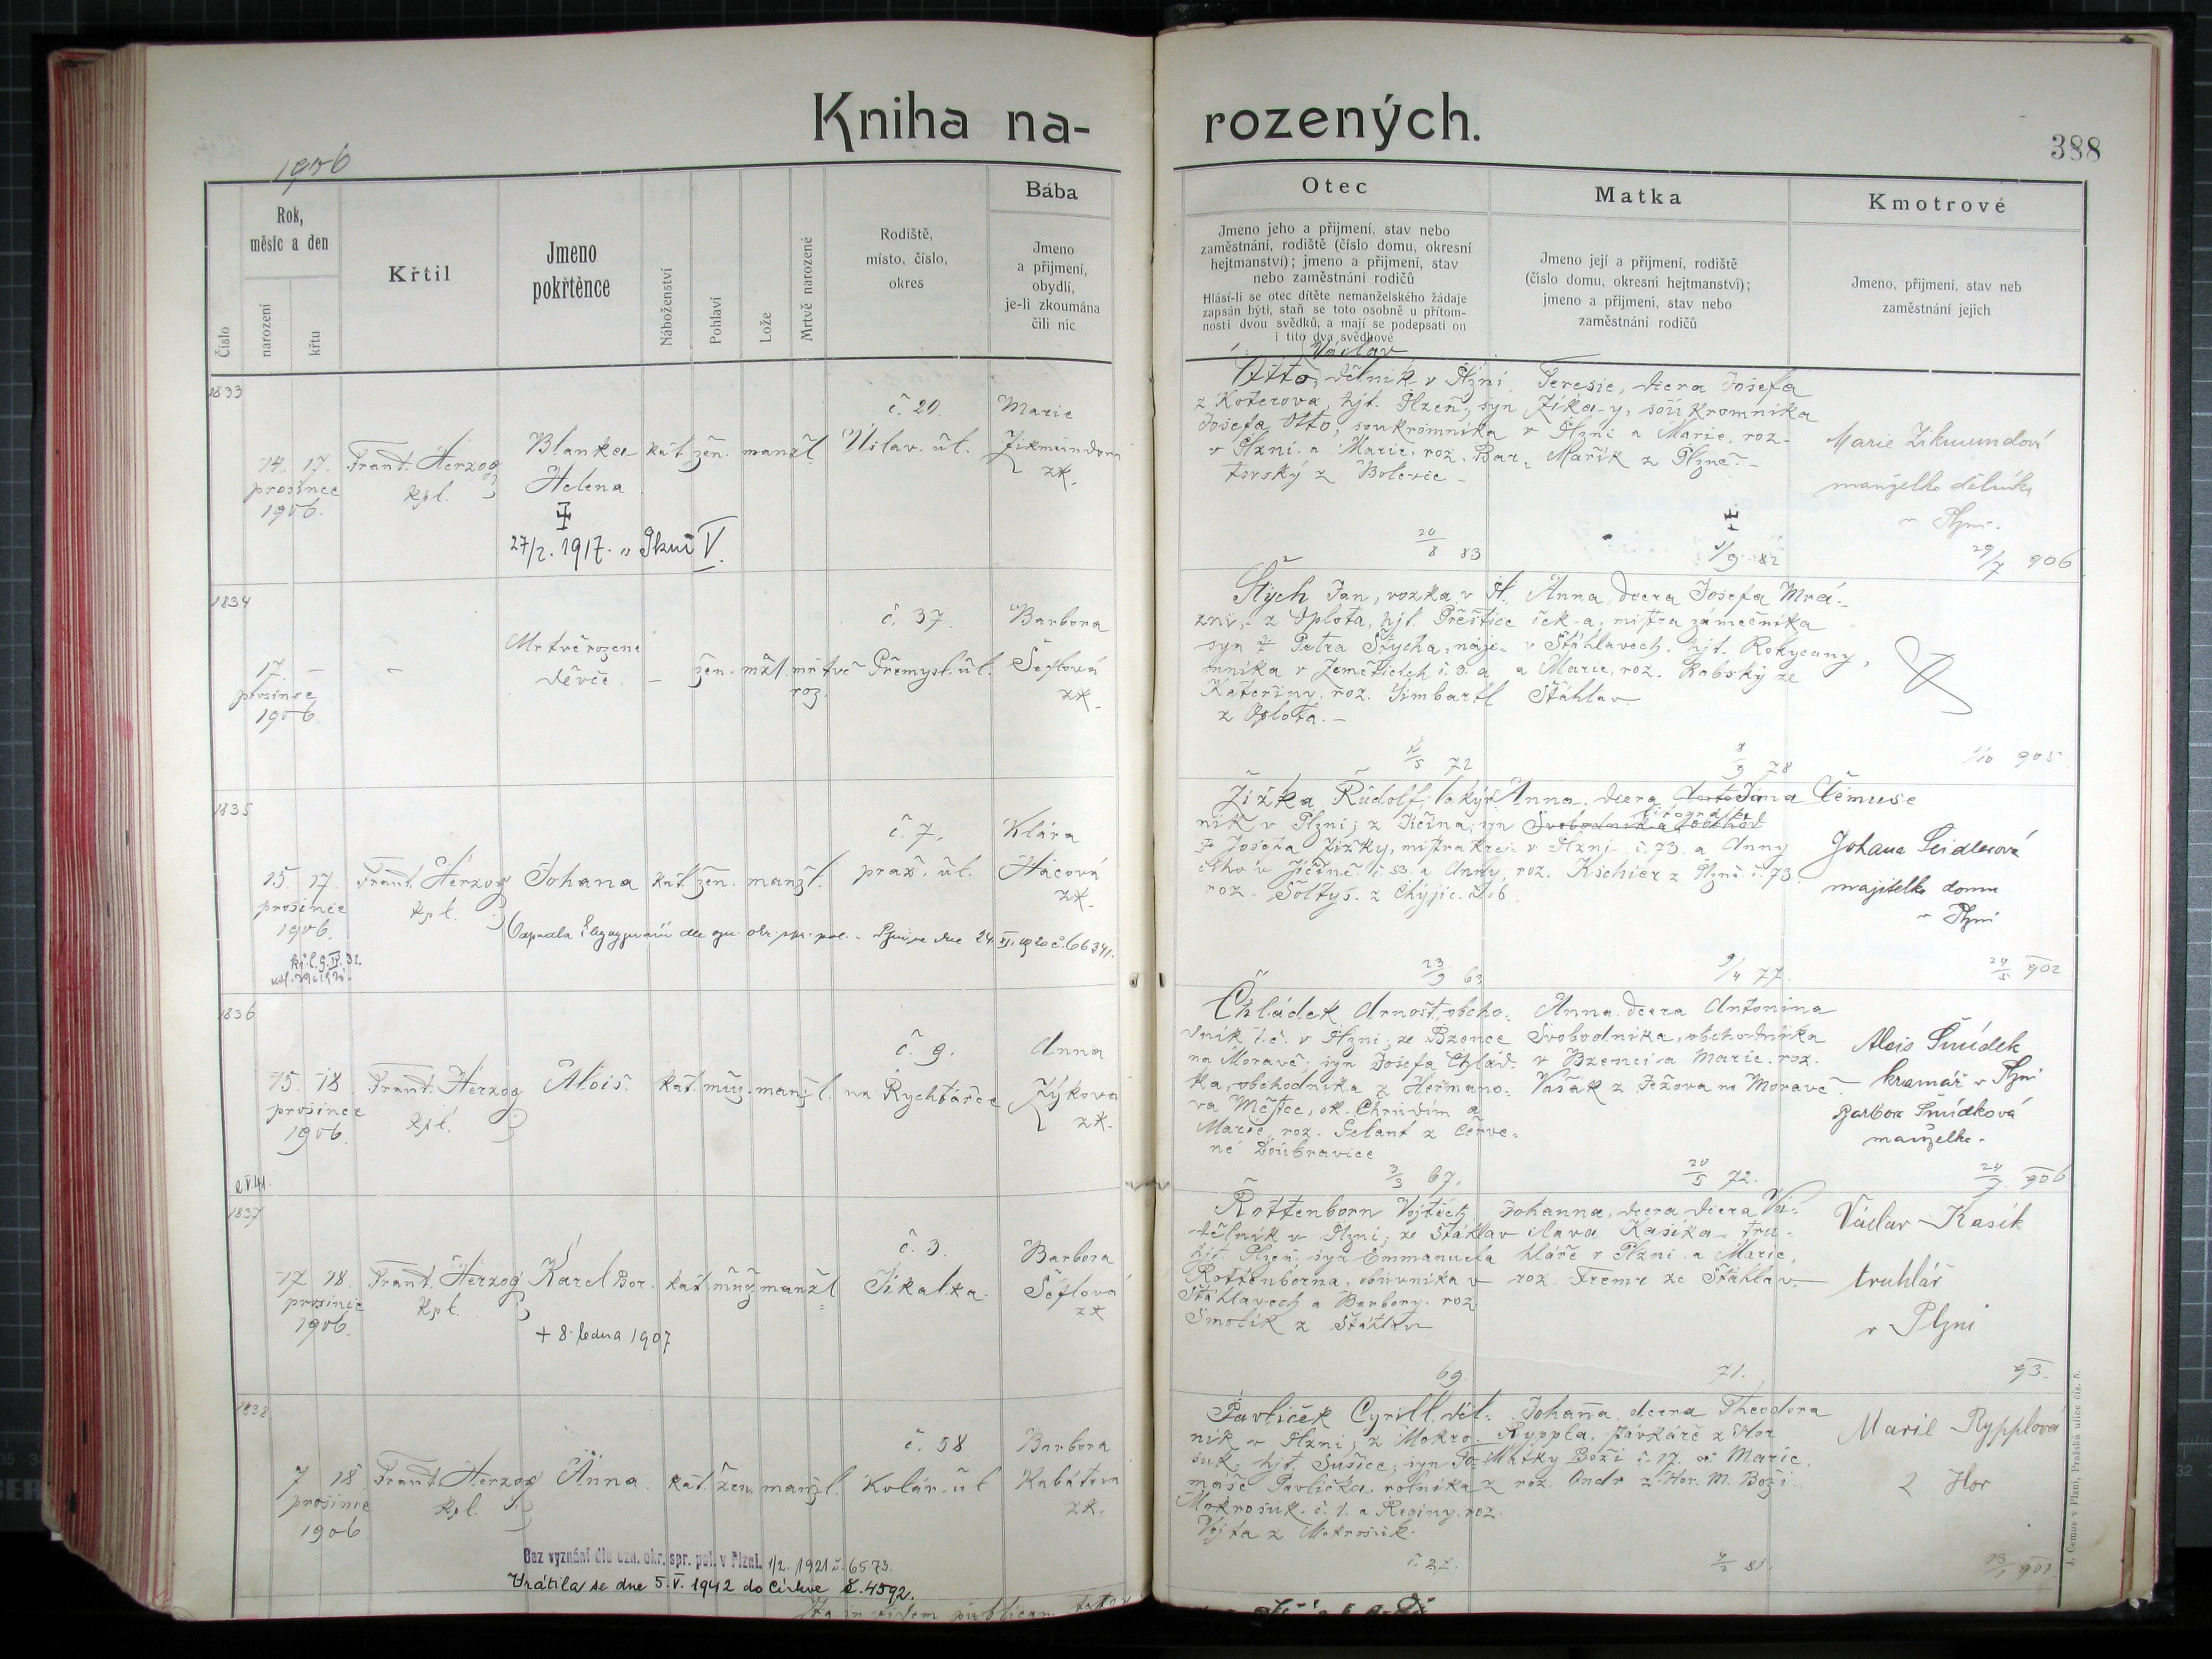 Kniha na-
rozených.
388
1906
Číslo
Rok,
měsíc a den
narození
křtu
Křtil
Jmeno
pokřtěnce
Náboženství
Pohlaví
Lože
Mrtvě narozené
Rodiště,
místo, číslo,
okres
Bába
Jmeno
a přijmení,
obydlí,
je-li zkoumána
čili nic
Otec
Jmeno jeho a přijmení, stav nebo
zaměstnání, rodiště (číslo domu, okresní
hejtmanství); jmeno a přijmení, stav
nebo zaměstnání rodičů
Hlásí-li se otec dítěte nemanželského žádaje
zapsán býti, staň se toto osobně u přítom-
nosti dvou svědků, a mají se podepsati on
i tito dva svědkové
Matka
Jmeno její a přijmení, rodiště
(číslo domu, okresní hejtmanství);
jmeno a přijmení, stav nebo
zaměstnání rodičů
Kmotrové
Jmeno, přijmení, stav neb
zaměstnání jejich
1833
14. 17.
prosince
1906.
Frant. Herzog
kpl.
Blanka
Helena
27/2. 1917. v Plzni V.
kat. žen. manžl.
č. 20.
Úslav. ul.
Marie
Zikmundova
zk.
Václav
Otto, dělník v Plzni
z Koterova, hjt. Plzeň, syn
Josefa Otto, soukromníka
v Plzni a Marie, roz. Bar-
torský z Bolevce -
20/8 83
Teresie, dcera Josefa
Zíka-y, soukromníka
v Plzni a Marie, roz.
Mařík z Plzně. -
1/9 82
Marie Zikmundová
manželka dělníka
v Plzni.
29/7 906
1834
17. -
prosince
1906
-
Mrtvě rozené
děvče
- žen. mžl. mrtvě
roz.
č. 37.
Přemysl. ul.
Barbora
Šeflová
zk.
Štych Jan, vozka v Pl-
zni, z Oplota, hjt. Přeštice
syn Petra Štycha, náje-
mníka v Zeměticích č. 3. a
Kateřiny, roz. Šimbartl
z Oplota. -
5 72
Anna, dcera Josefa Mrá-
ček-a, mistra zámečníka
v Štáhlavech, hjt. Rokycany,
a Marie, roz. Rabský ze
Štáhlav
9 78
1/10 905
1835
15. 17.
prosince
1906.
Frant. Herzog
kpl.
Johana
kat. žen. manžl.
č. 7.
praž. ul.
Klára
Hácová
zk.
dne 24. XI. 1920 č. 66341.
Žižka Rudolf, lakýr-
ník v Plzni, z Jičína, syn
Josefa Žižky, mistra krej-
čího v Jičíně č. 53. a Anny,
roz. Šoltys. z Chýjic. č. 6.
23/9 63
Anna, dcera Jana Čemuse
litografa
v Plzni č. 73. a Anny
roz. Kschier z Plzně č. 73.
9/4 77
Johana Seidlerová
majitelka domu
v Plzni
24/5 902
1836
15. 18.
prosince
1906.
Frant. Herzog
kpl.
Alois.
kat. muž. manžl.
č. 9.
na Rychtářce
Anna
Zýkova
zk.
Chládek Arnošt, obcho-
dník t. č. v Plzni, ze Bzence
na Moravě, syn Josefa Chlád-
ka, obchodníka z Heřmano-
va Městce, ok. Chrudim a
Marie, roz. Gelant z Červe-
né Doubravice
3/3 67.
Anna, dcera Antonína
Svobodníka, obchodníka
v Bzenci a Marie, roz.
Vašák z Ježova na Moravě -
20/5 72.
Alois Šmídek
kramář v Plzni
Barbora Šmídková
manželka.
24/7 906
1837
17 18.
prosince
1906.
Frant. Herzog
kpl.
Karel Bor.
+ 8. ledna 1907
kat. muž. manžl
č. 3.
Jikalka
Barbora
Šeflová
zk
Rottenborn Vojtěch,
dělník v Plzni, ze Štáhlav
hjt. Plzeň, syn Emmanuela
Rottenborna, obuvníka v
Štáhlavech a Barbory, roz.
Smolík z Štáhlav
69.
Johanna, dcera dcera Vá-
clava Kasíka, tru-
hláře v Plzni a Marie,
roz. ze Štáhlav. -
71.
Václav Kasík
truhlář
v Plzni
93.
1838
7 18
prosince
1906.
Frant. Herzog
kpl.
Anna.
kat. žen. manžl.
č. 58
Kolár. ul
Barbora
Kabátova
zk.
Bez vyznání dle ozn. okr. spr. pol. v Plzni. 1/2. 1921 č. 6573.
Vrátila se dne 5. V. 1942 do církve č. 4592.
Pavlíček Cyrill, děl-
ník v Plzni, z Mokro-
suk, hjt. Sušice, syn To-
máše Pavlíčka, rolníka z
Mokrosuk. č. 1. a Reginy, roz.
Vojta z Mokrosuk.
Johanna, dcera Theodora
Ryppla, z Hor
Matky Boží č. 17. a Marie,
roz. Ondr z Hor. M. Boží
Marie Rypplová
z Hor
J. Černus v Plzni, Pražská ulice čís. 8.